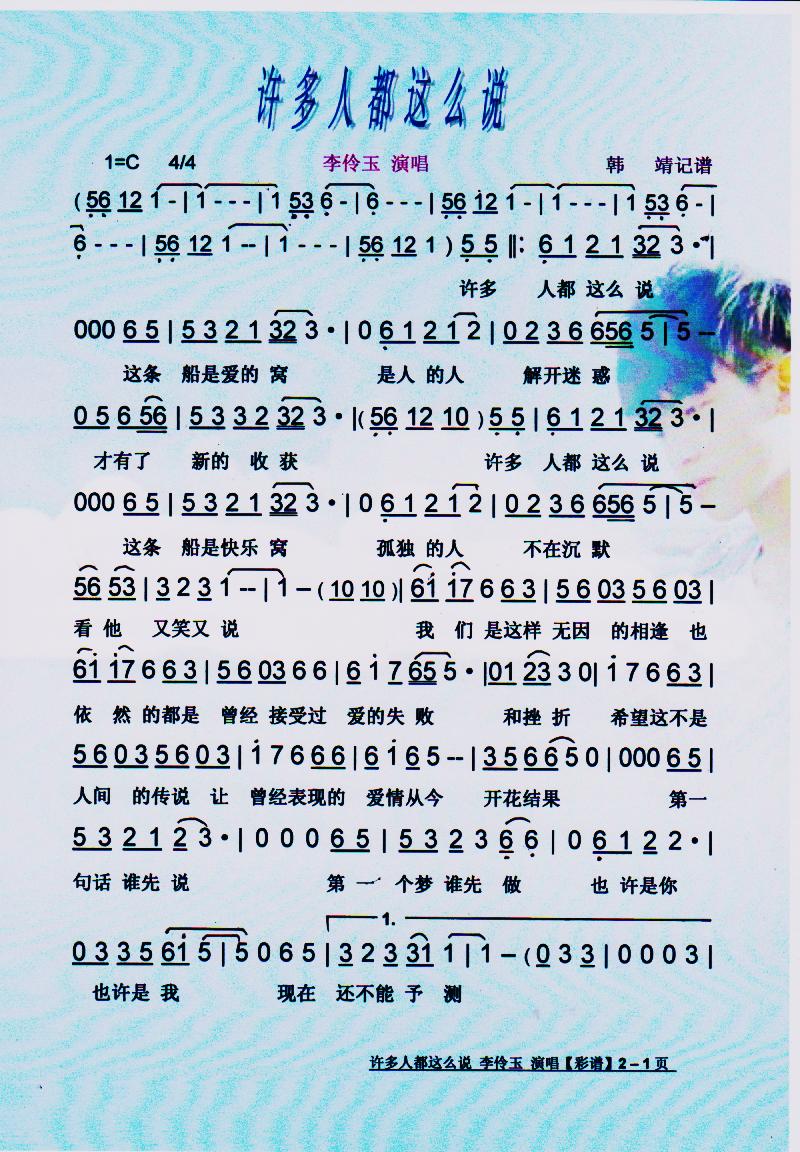 许多人都这么说
1=C 4/4 李伶玉 演唱 韩 靖记谱
(56 12 1 - | 1 - - - | 1 53 6 - | 6 - - - | 56 12 1 - | 1 - - - | 1 53 6 - |
6 - - - | 56 12 1 -- | 1 - - - | 56 12 1 ) 5 5 ‖: 6 1 2 1 32 3 · |
许多 人都 这么 说
000 6 5 | 5 3 2 1 32 3 · | 0 6 1 2 1 2 | 0 2 3 6 656 5 | 5 –
这条 船是爱的 窝 是人 的人 解开迷 惑
0 5 6 56 | 5 3 3 2 32 3 · |( 56 12 10 ) 5 5 | 6 1 2 1 32 3 · |
才有了 新的 收 获 许多 人都 这么 说
000 6 5 | 5 3 2 1 32 3 · | 0 6 1 2 1 2 | 0 2 3 6 656 5 | 5 –
这条 船是快乐 窝 孤独 的人 不在沉 默
56 53 | 3 2 3 1 -- | 1 – ( 10 10 )| 61 17 6 6 3 | 5 6 03 5 6 03 |
看 他 又笑又 说 我 们 是这样 无因 的相逢 也
61 17 6 6 3 | 5 6 03 6 6 | 6 1 7 65 5 · |01 23 3 0| 1 7 6 6 3 |
依 然 的都是 曾经 接受过 爱的失 败 和挫 折 希望这不是
5 6 0 3 5 6 0 3 | 1 7 6 6 6 | 6 1 6 5 -- | 3 5 6 6 5 0 | 000 6 5 |
人间 的传说 让 曾经表现的 爱情从今 开花结果 第一
5 3 2 1 2 3 · | 0 0 0 6 5 | 5 3 2 3 6 6 | 0 6 1 2 2 · |
句话 谁先 说 第 一 个梦 谁先 做 也 许是你
1.
0 3 3 5 61 5 | 5 0 6 5 | 3 2 3 31 1 | 1 – ( 0 3 3 | 0 0 0 3 |
也许是 我 现在 还不能 予 测
许多人都这么说 李伶玉 演唱【彩谱】2 – 1页